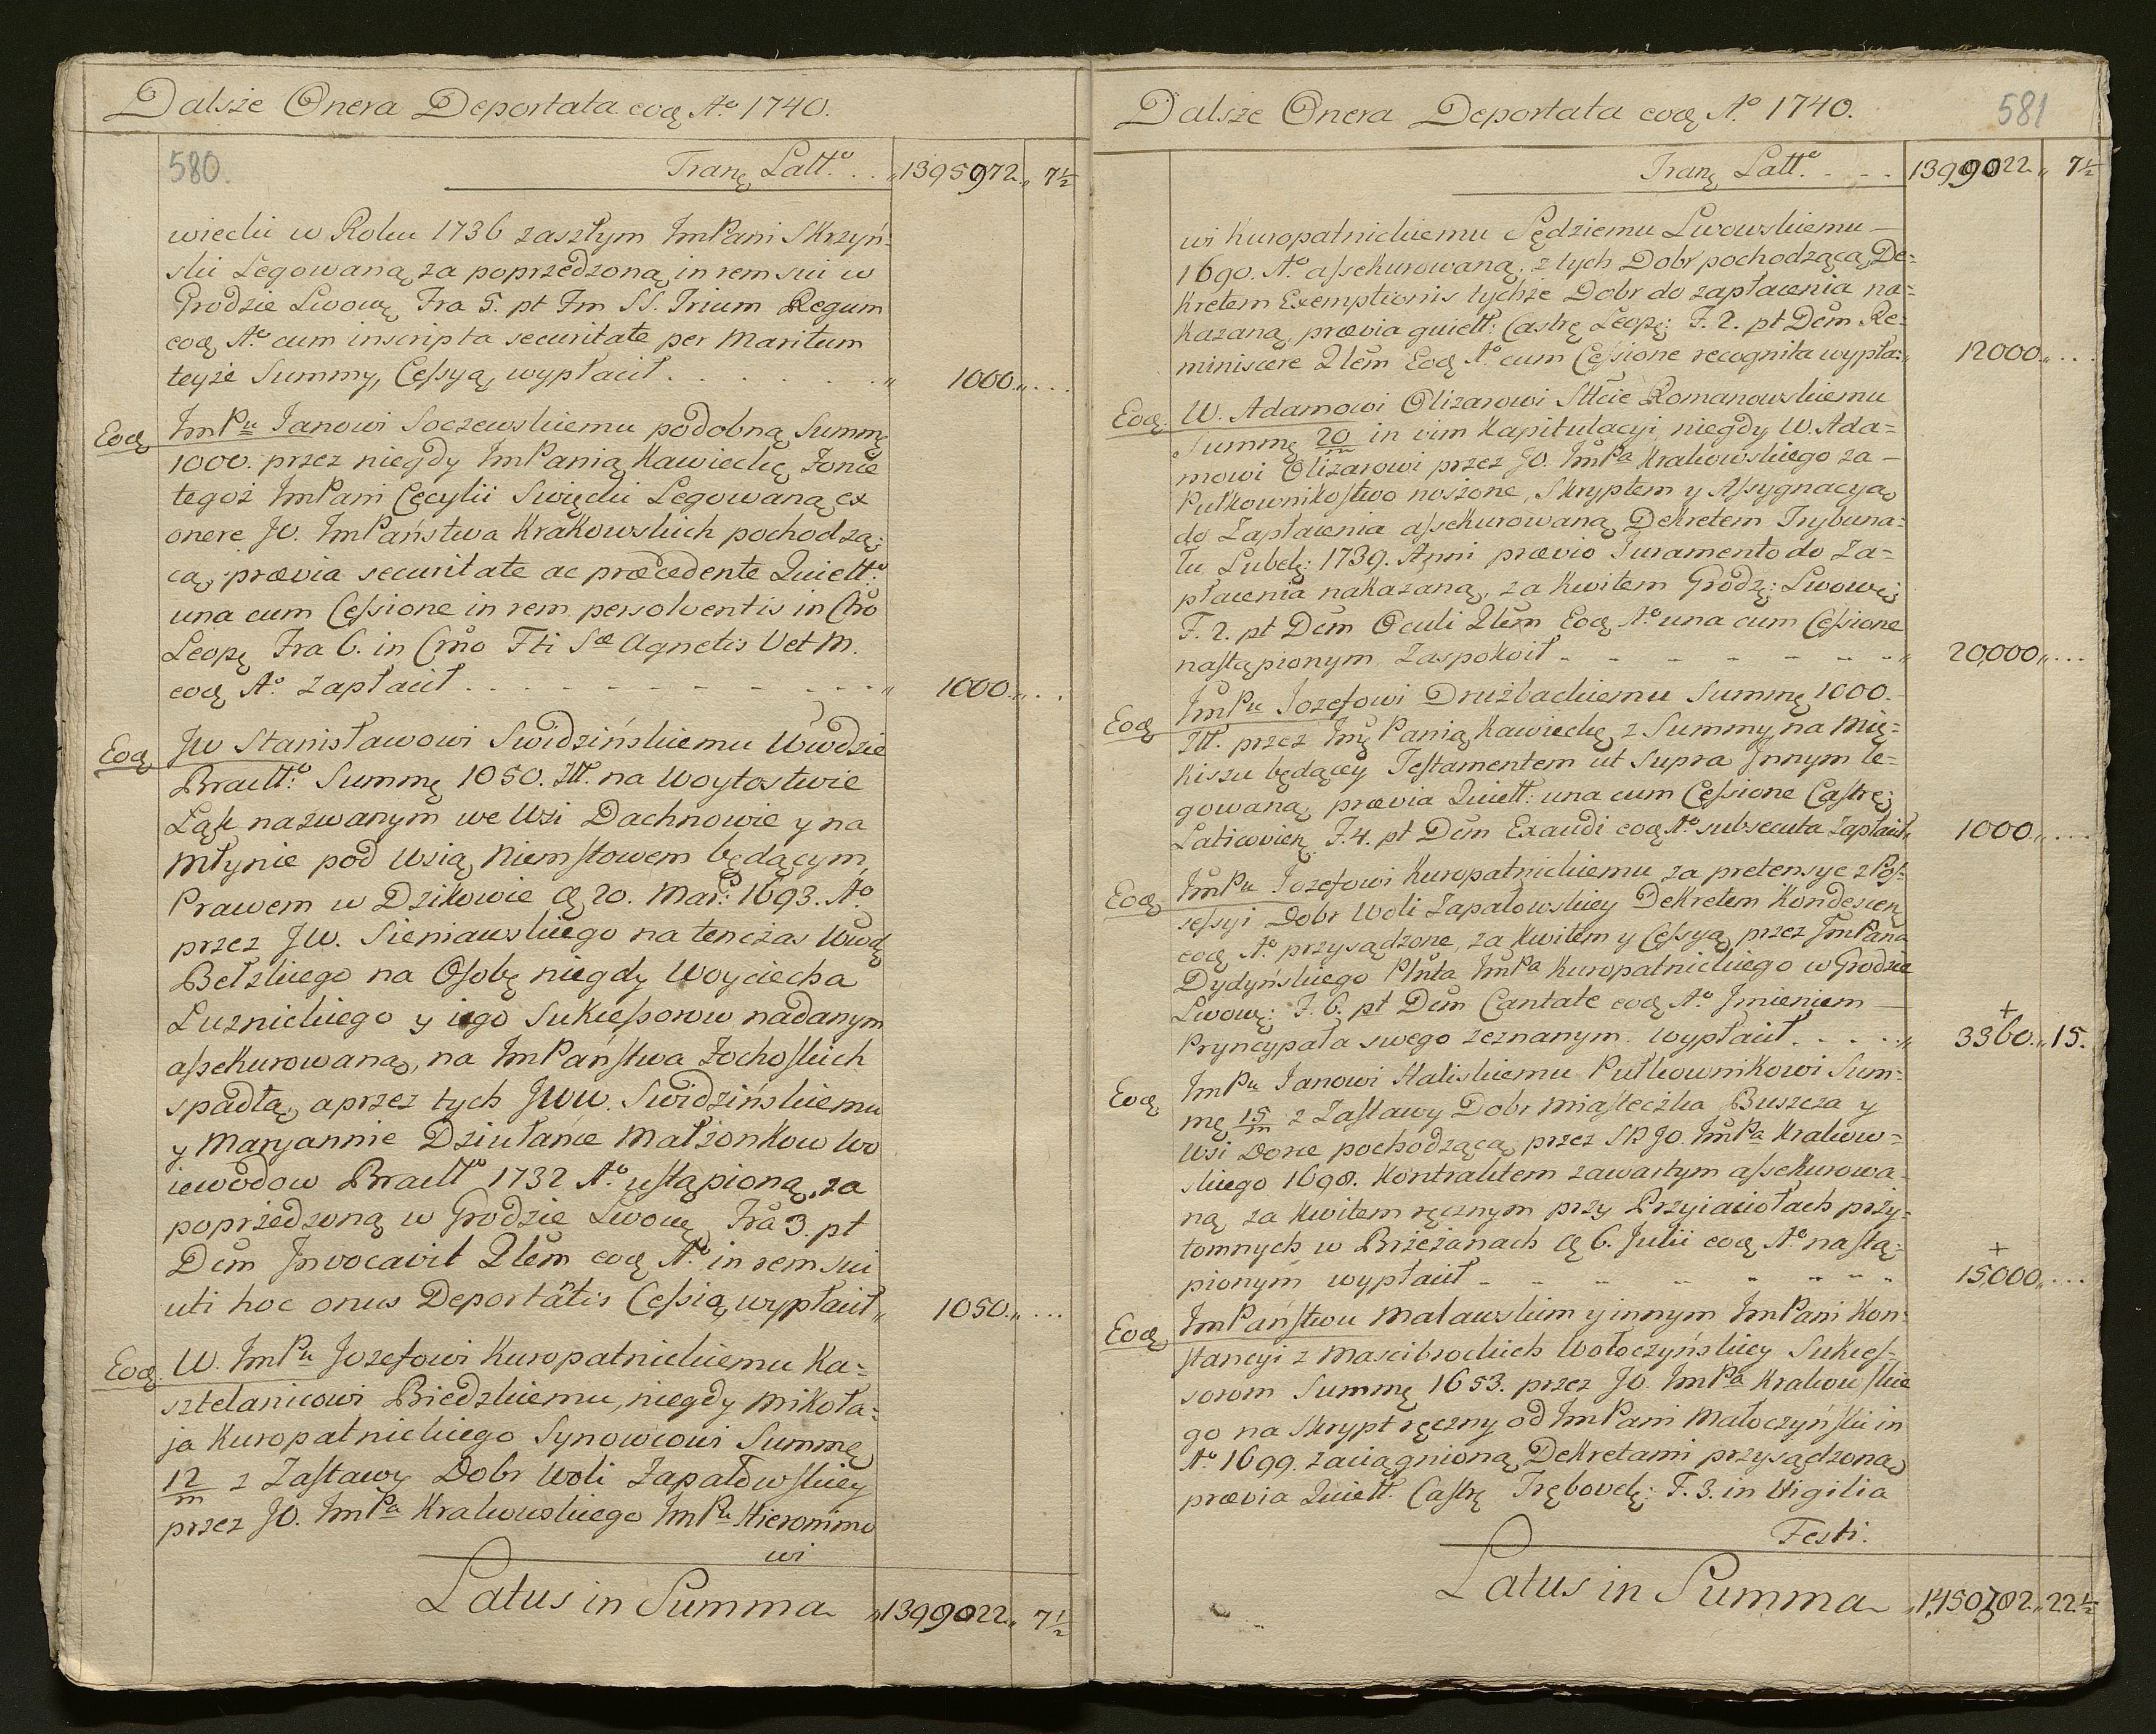 Dalsze Onera Deportata eodę A.o 1740.
580.
Tranę Latt.o . . „ 1395972 „ 7½
wiecki w Roku 1736 zaszłym ImPani Skrzyń-
ski Legowaną, za poprzedzoną in rem sui w
Grodzie Lwowę Fra 5. pt Fm SS. Trium Regum
eodę A.o cum inscripta securitate per Maritum
teyże Summy, Cessyą, wypłacił . . . . . . . „ 1000 „ . . .
Eodę ImPu Janowi Soczewskiemu podobną Summę
1000. przez niegdy ImPanią Kawiecką Żonie
tegoż ImPani Cecylii Swięcki Legowaną ex
onere JO. ImPaństwa Krakowskich pochodzą:
cą, prævia securitate ac præcedente Quiett:
una cum Cessione in rem persolventis in Cňo
Leopę Fra 6. in Crňo Fti Sæ Agnetis V et M.
eodę A.o zapłacił . . . . . . . . . . . „ 1000 „ . . .
Eodę JW Stanisławowi Swidzińskiemu Wwdzie
Bractt.o Summę 1050. Ztt. na Woytostwie
Łąk nazwanym we Wsi Dachnowie y na
Młynie pod Wsią Niemstowem będącym
Prawem w Dzikowie dę 20. Mar: 1693. A.o
przez JW. Sieniawskiego na tenczas Wwdę
Bełzkiego na Osobę niegdy Woyciecha
Łuznickiego y iego Sukcessorow nadanym
assekurowaną, na ImPaństwa Żochoskich
spadłą, a przez tych JWW. Swidzińskiemu
y Maryannie Dziułance Małżonkow Wo
iewodow Bractt.o 1732 A.o ustąpioną, za
poprzedzoną w Grodzie Lwowę Fra 3. pt
Dcm Invocavit Qlem eodę A.o in rem sui
uti hoc onus Deportătis Cessią wypłacił „ 1050 „ . . .
Eodę W. ImPu Jozefowi Kuropatnickiemu Ka-
sztelanicowi Biedzkiemu, niegdy Mikoła-
ja Kuropatnickiego Synowcowi Summę
12/m z Zastawy Dobr Woli Zapałowskiey
przez JO. ImPa Krakowskiego ImPu Hieronimo
wi
Latus in Summa „ 1399022 „ 7½
Dalsze Onera Deportata eodę A.o 1740.
581
Tranę Latt.o . . . 1399022 „ 7½
wi Kuropatnickiemu Sędziemu Lwowskiemu —
1690. A.o assekurowaną, z tych Dobr pochodzącą, De-
kretem Exemptionis tychże Dobr do zapłacenia na-
kazaną, prævia quiett: Castrę Leopę: F. 2. pt Dcm Re-
miniscere Qlem Eodę A.o cum Cessione recognita wypła: „ 12000 „ . . .
Eodę W. Adamowi Olizarowi Sttcie Romanowskiemu
Summę 20/m in vim Kapitulacyi, niegdy W. Ada-
mowi Olizarowi przez JO. ImPa Krakowskiego za —
Pułkownikostwo noszone, Skryptem y Assygnacyą
do Zapłacenia assekurowaną, Dekretem Trybuna-
łu Lubelę: 1739. Anni prævio Juramento do Za-
płacenia nakazaną, za Kwitem Grodzę: Lwowę:
F. 2. pt Dcm Oculi Qlem Eodę A.o una cum Cessione
nastąpionym, zaspokoił - - - - - - - „ 20,000 „ . . .
Eodę ImPu Jozefowi Drużbackiemu Summę 1000.
Ztt. przez Imę Panią Kawiecką z Summy na Mię-
kiszu będącey Testamentem ut Supra Innym le-
gowaną, prævia Quiett: una cum Cessione Castrę:
Laticovienę F. 4. pt Dcm Exaudi eodę A.o subsecuta zapłacił „ 1000 „ . . .
Eodę ImPu Jozefowi Kuropatnickiemu za pretensye z Pos-
sessyi Dobr Woli Zapałowskiey Dekretem Kondescenę
eodę A.o przysądzone, za Kwitem y Cessyą przez ImPana
Dydyńskiego Plňta ImPa Kuropatnickiego w Grodzie
Lwowę: F. 6. pt Dcm Cantate eodę A.o Imieniem —
Pryncypała swego zeznanym wypłacił . . . . „ + 3360 „ 15.
Eodę ImPu Janowi Haliskiemu Pułkownikowi Sum-
mę 15/m z Zastawy Dobr Miasteczka Buszcza y
Wsi Dorie pochodzącą, przez SP JO. ImPa Krakow-
skiego 1698. Kontraktem zawartym assekurowa-
ną, za Kwitem ręcznym przy Przyiaciołach przy-
tomnych w Brzeżanach dę 6. Julii eodę A.o nastą-
pionym wypłacił - - - - - - - + 15,000 „ . . .
Eodę ImPaństwu Małauskim y innym ImPani Kon-
stancyi z Mascibrockich Wołoczyńskiey Sukces-
sorom Summę 1653. przez JO. ImPa Krakowskie
go na Skrypt ręczny od ImPani Małoczyńskiin
A.o 1699. zaciągnioną, Dekretami przysądzoną,
prævia Quiett. Castrę Trębovelę: F. 3. in Vigilia
Festi.
Latus in Summa „ 1,450,782 „ 22½